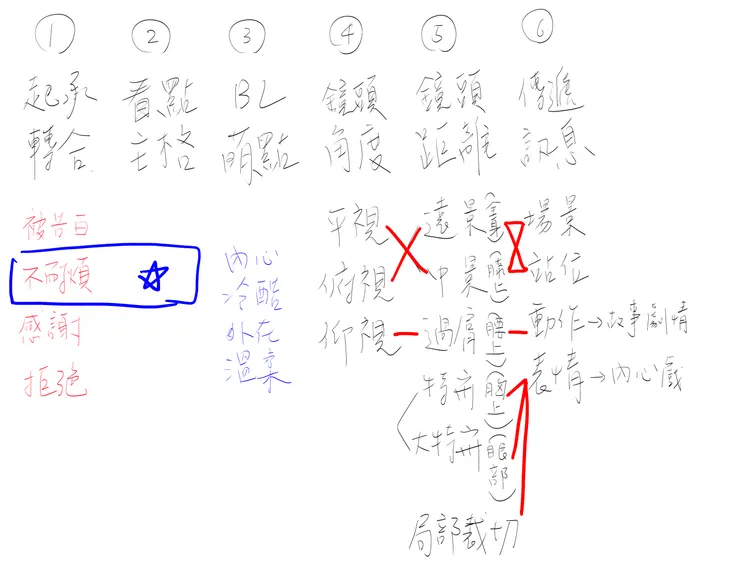 ① ② ③ ④ ⑤ ⑥
起承 看點 BL 鏡頭 鏡頭 傳遞
轉合 主格 萌點 角度 距離 訊息
被告白 平視 遠景(全身) 場景
不耐煩 內心 俯視 中景(膝上) 站位
冷酷
感謝 外在 仰視 過肩(腰上) 動作→故事劇情
拒絕 溫柔 特寫(胸上) 表情→內心戲
大特寫(眼部)
局部裁切